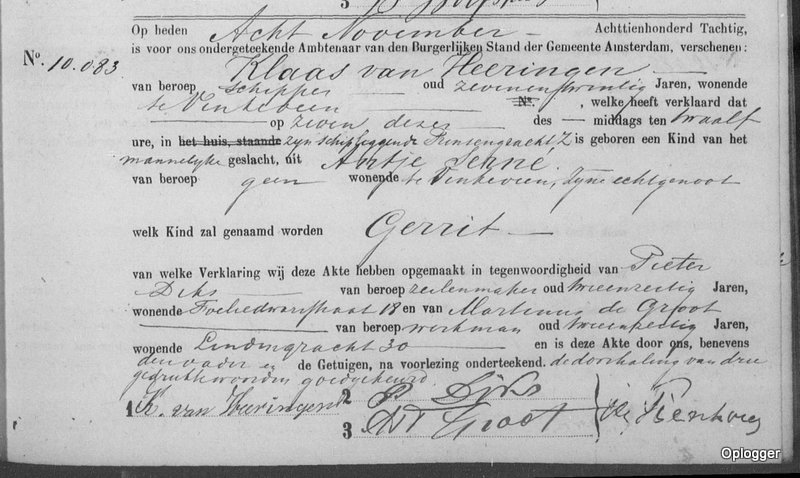 3
Op heden Acht November Achttienhonderd Tachtig,
is voor ons ondergeteekende Ambtenaar van den Burgerlijken Stand der Gemeente Amsterdam, verschenen:
No. 10.083
Klaas van Heeringen
van beroep schipper oud zevenentwintig Jaren, wonende
te Vinkeveen No. , welke heeft verklaard dat
op zeven dezer des middags ten twaalf
ure, in het huis, staande zijn schip liggende Prinsengracht Z is geboren een Kind van het
mannelijke geslacht, uit Antje Terné
van beroep geen wonende te Vinkeveen, zijne echtgenoot
welk Kind zal genaamd worden Gerrit
van welke Verklaring wij deze Akte hebben opgemaakt in tegenwoordigheid van Pieter
Diks van beroep zeilenmaker oud tweeenzestig Jaren,
wonende Foeliedwarsstraat 18 en van Martinus de Groot
van beroep werkman oud tweeenzestig Jaren,
wonende Lindengracht 30 en is deze Akte door ons, benevens
den vader en de Getuigen, na voorlezing onderteekend. de doorhaling van drie
gedrukte woorden goedgekeurd.
1 K. van Heeringen 2 P Diks
3 M D Groot
Oplogger